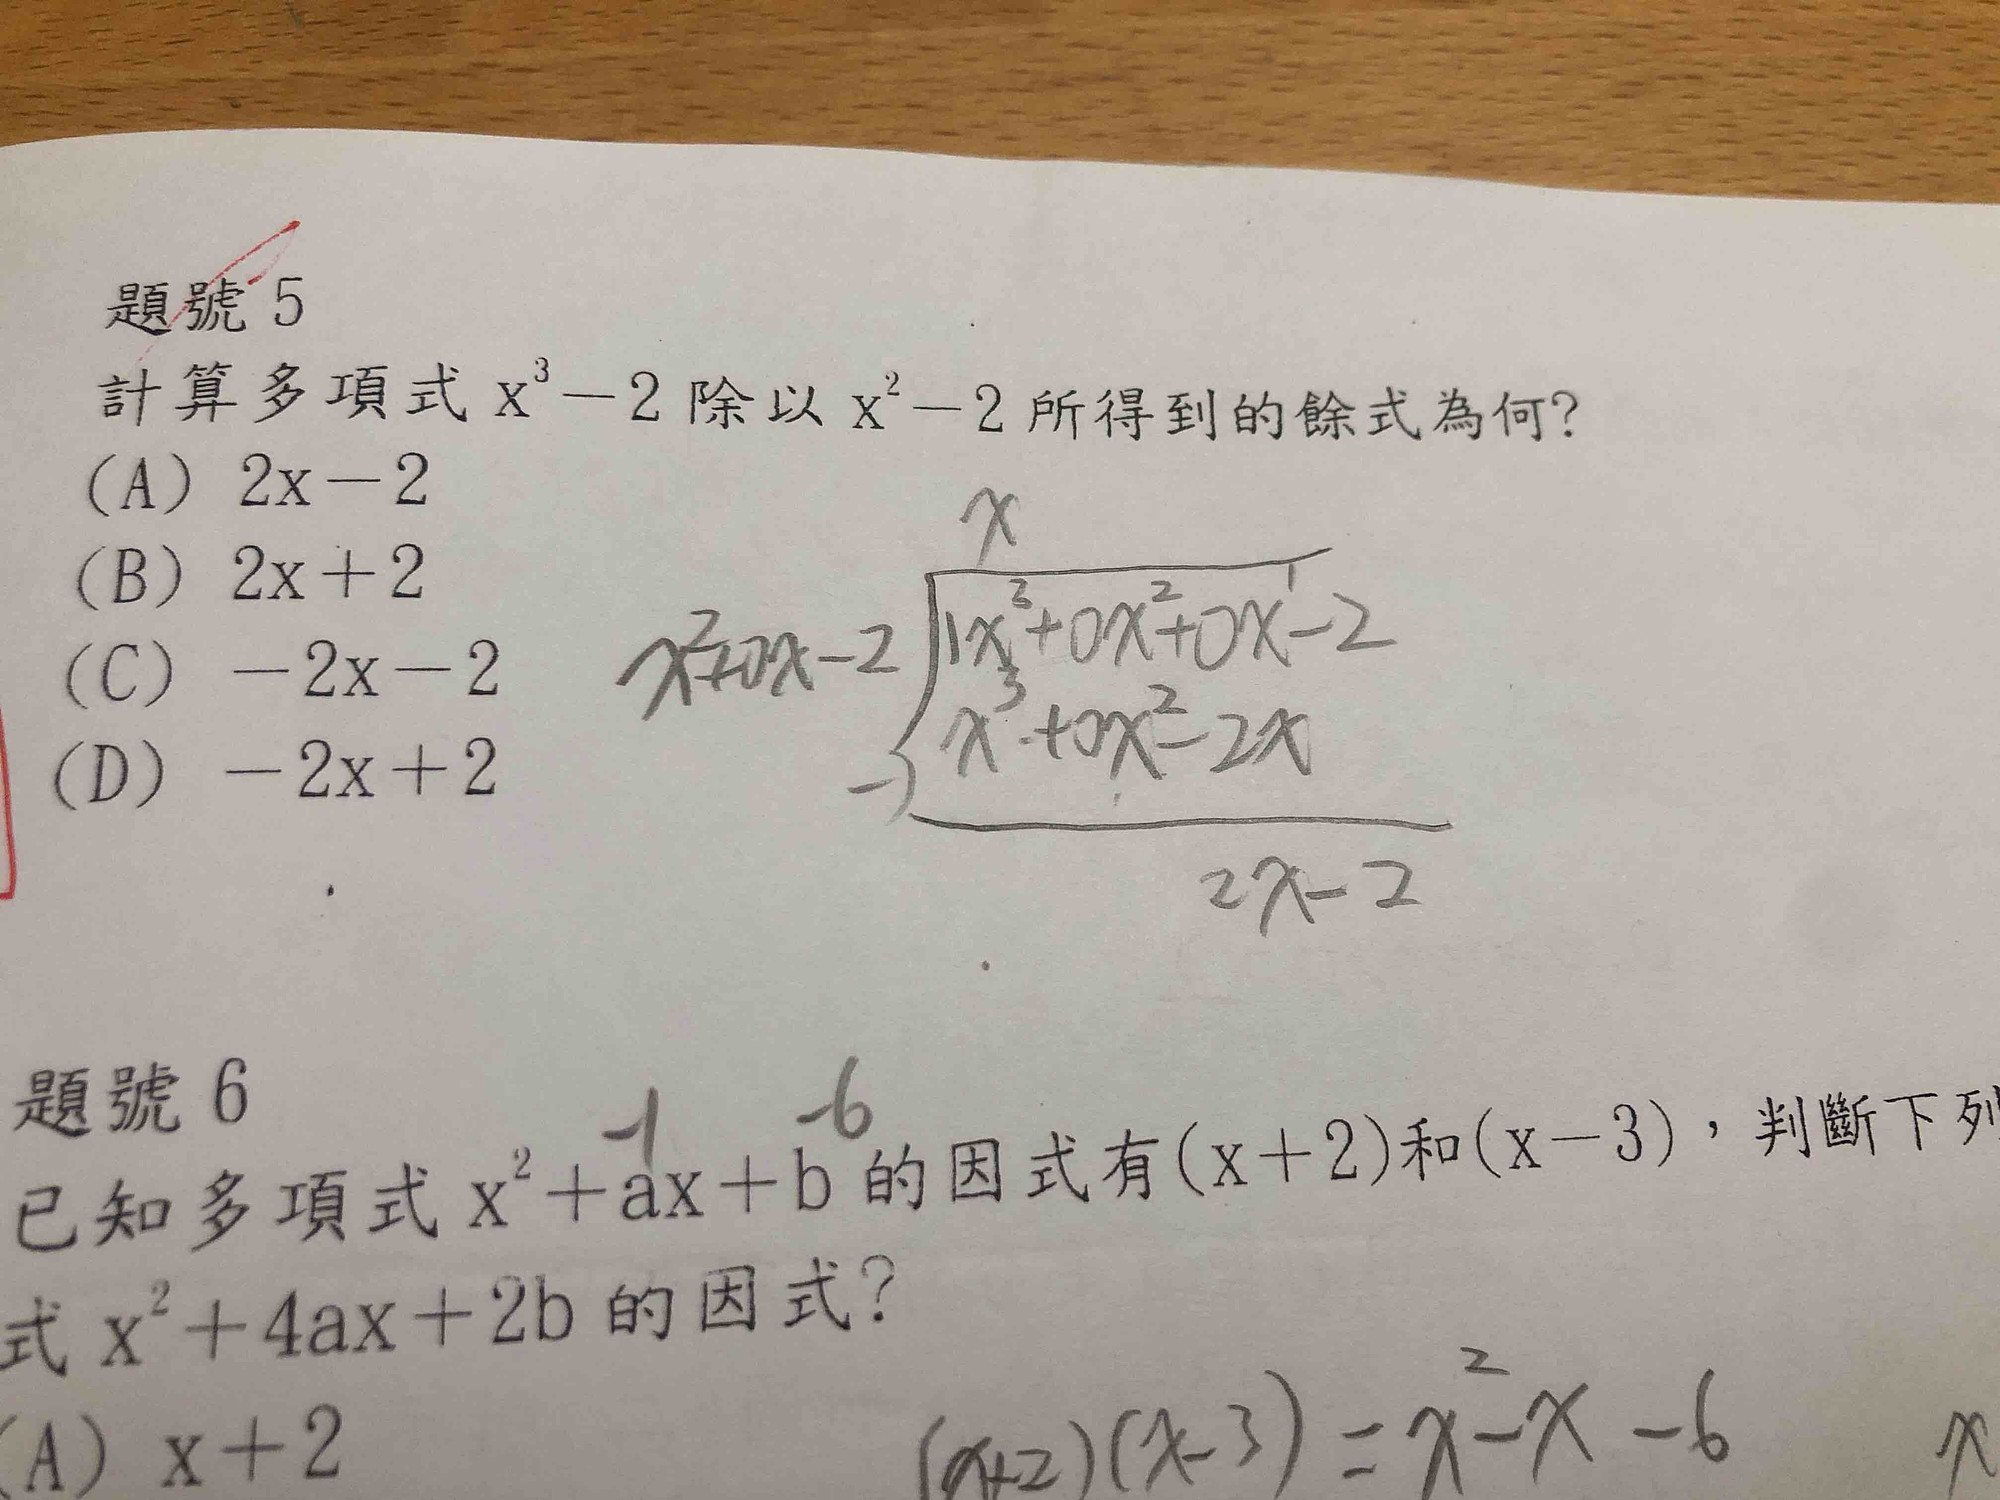 題號 5
計算多項式 x³－2 除以 x²－2 所得到的餘式為何?
(A) 2x－2
(B) 2x＋2
(C) －2x－2
(D) －2x＋2
x
x²+0x-2
1x³+0x²+0x¹-2
x³+0x²-2x
-)
2x-2
題號 6
-1 -6
已知多項式 x²＋ax＋b 的因式有(x＋2)和(x－3)，判斷下列
式 x²＋4ax＋2b 的因式?
(A) x＋2
(x+2)(x-3)=x²-x-6
x